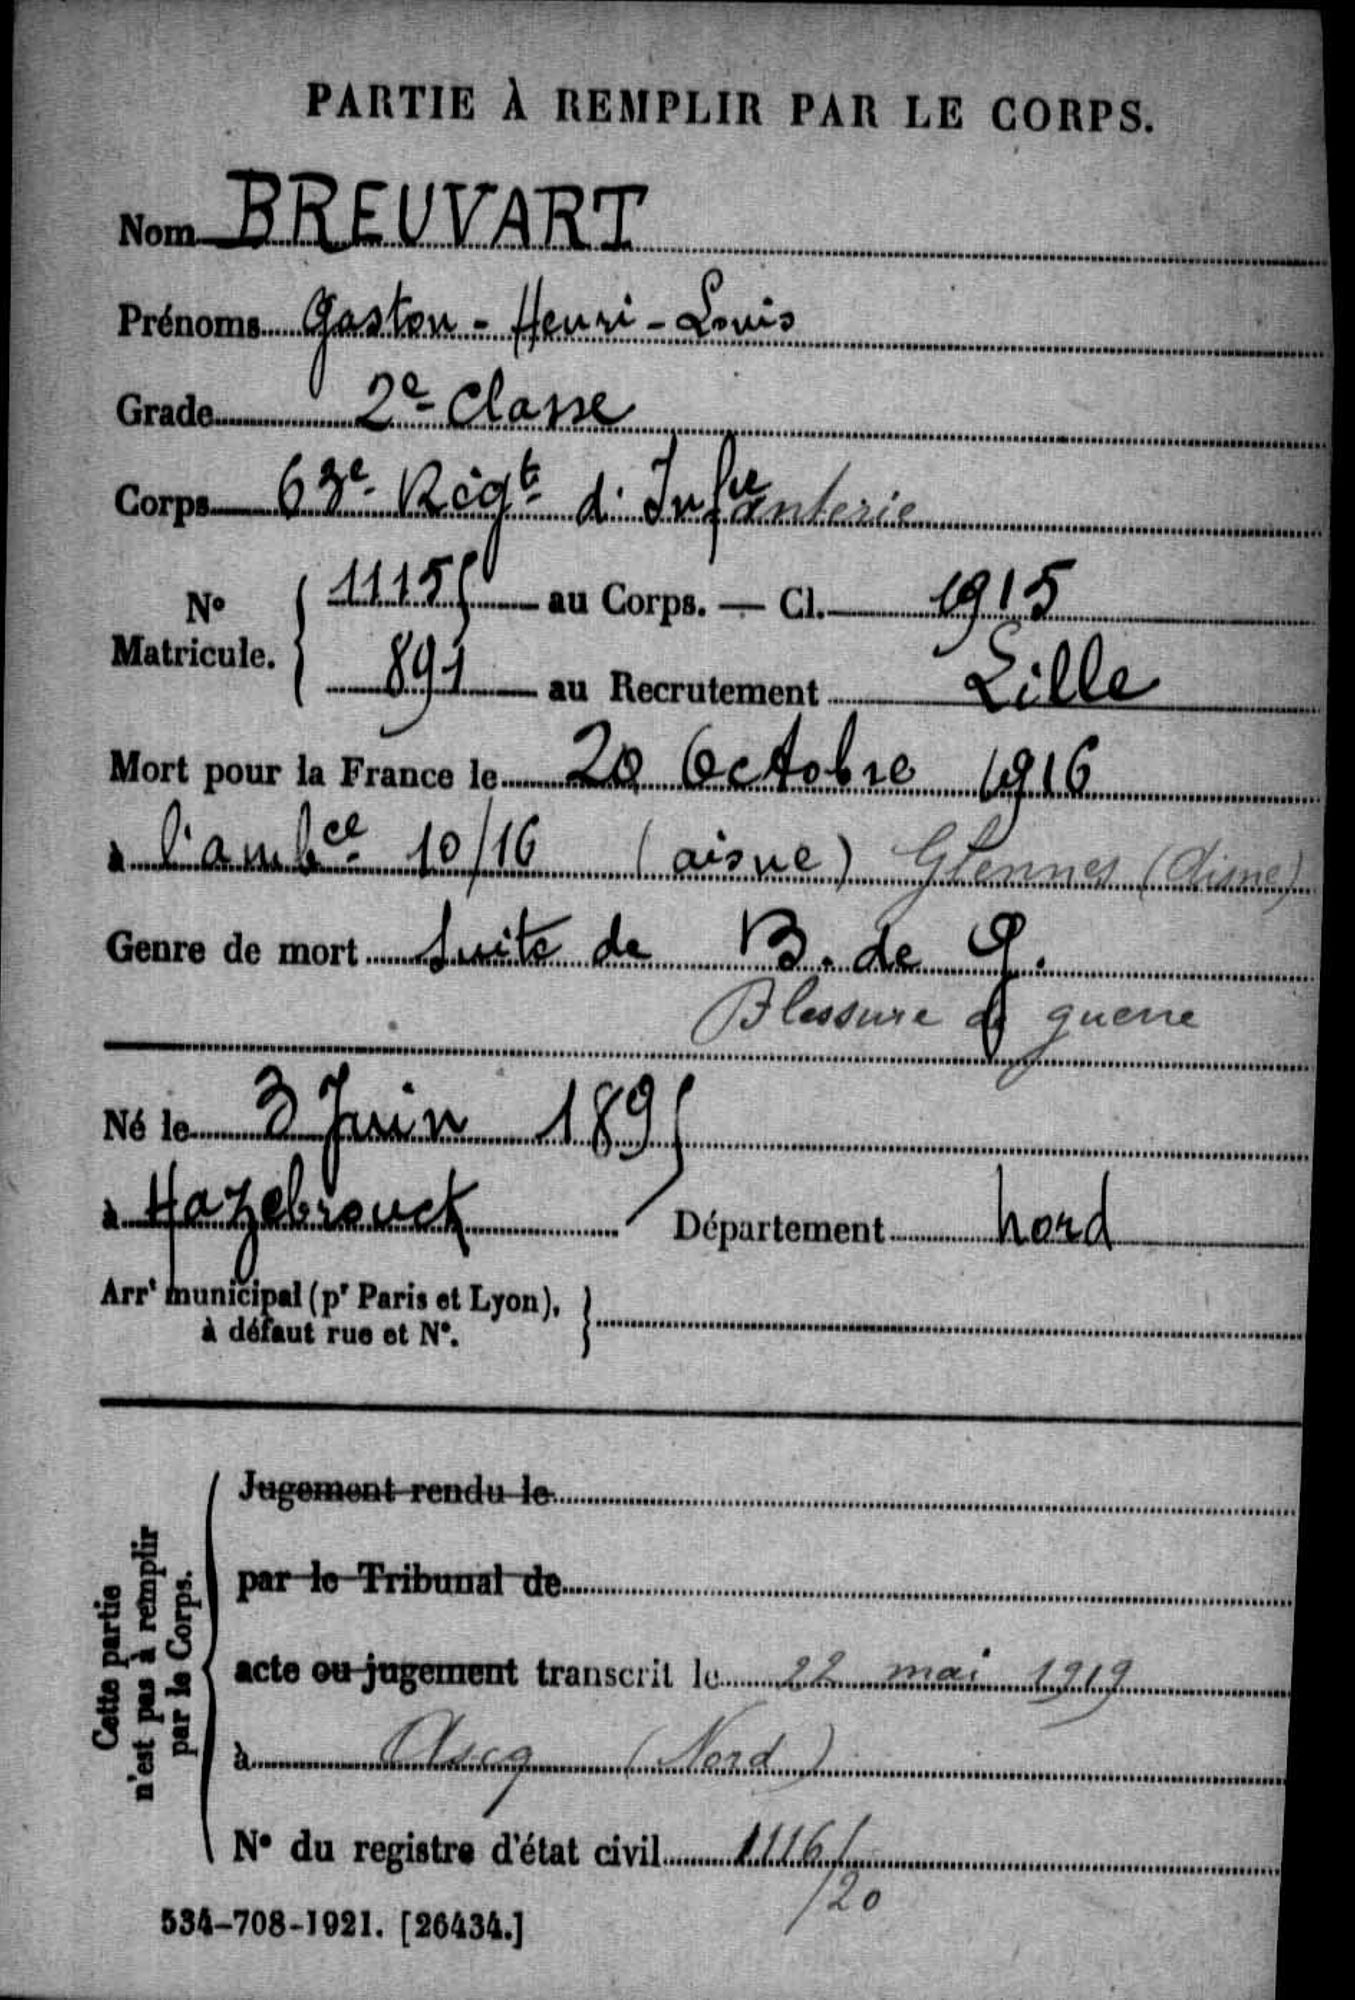 PARTIE À REMPLIR PAR LE CORPS.
Nom BREUVART
Prénoms Gaston - Henri - Louis
Grade 2e Classe
Corps 63e Régt d'Infie anterie
No Matricule. { 11155 au Corps. — Cl. 1915
891 au Recrutement Lille
Mort pour la France le 20 Octobre 1916
à l'ambce 10/16 (aisne) Glennes (Aisne)
Genre de mort Suite de B. de G.
Blessure de guerre
Né le 3 Juin 1895
à Hazebrouck Département Nord
Arrt municipal (pr Paris et Lyon), à défaut rue et No. }
Cette partie n'est pas à remplir par le Corps.
Jugement rendu le
par le Tribunal de
acte ou jugement transcrit le 22 mai 1919
à Ascq (Nord)
No du registre d'état civil 1116/
/20
534-708-1921. [26434.]